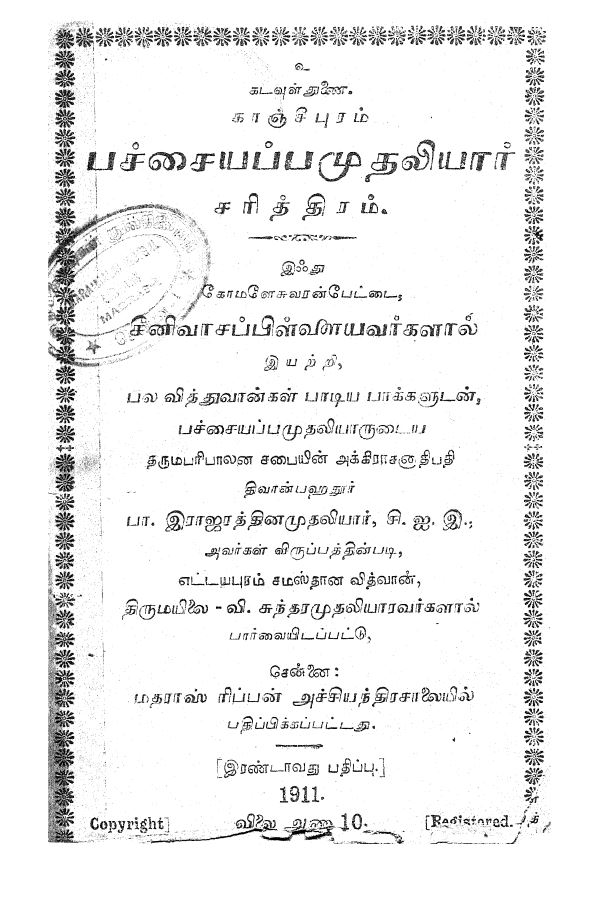 உ
கடவுள்துணை.
காஞ்சீபுரம்
பச்சையப்பமுதலியார்
சரித்திரம்.
இஃது
கோமளேசுவரன்பேட்டை,
சீனிவாசப்பிள்ளையவர்களால்
இயற்றி,
பல வித்துவான்கள் பாடிய பாக்களுடன்,
பச்சையப்பமுதலியாருடைய
தருமபரிபாலன சபையின் அக்கிராசனாதிபதி
திவான்பஹதூர்
பா. இராஜரத்தினமுதலியார், சி. ஐ. இ.,
அவர்கள் விருப்பத்தின்படி,
எட்டயபுரம் சமஸ்தான வித்வான்,
திருமயிலை - வி. சுந்தரமுதலியாரவர்களால்
பார்வையிடப்பட்டு,
சென்னை:
மதராஸ் ரிப்பன் அச்சியந்திரசாலையில்
பதிப்பிக்கப்பட்டது.
[இரண்டாவது பதிப்பு.]
1911.
Copyright] விலை அணா 10. [Registered.